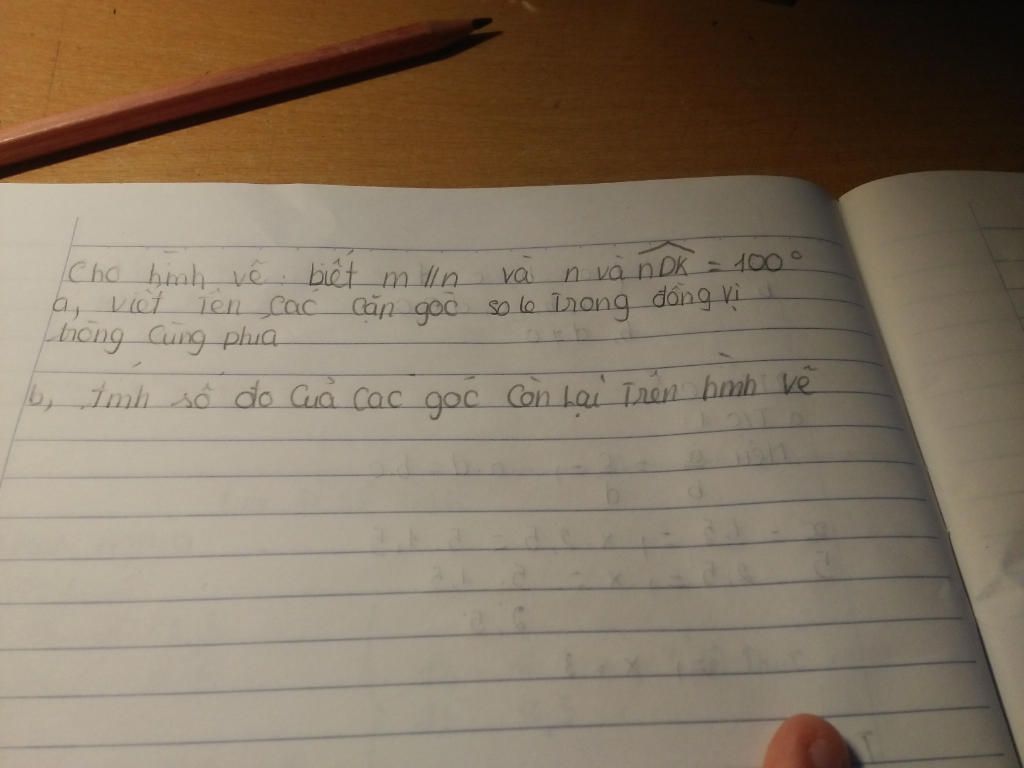 Cho hình vẽ: biết m//n và n và nDK = 100°
a, viết tên các cặp góc so le trong đồng vị
trong cùng phía
b, tính số đo của các góc còn lại trên hình vẽ